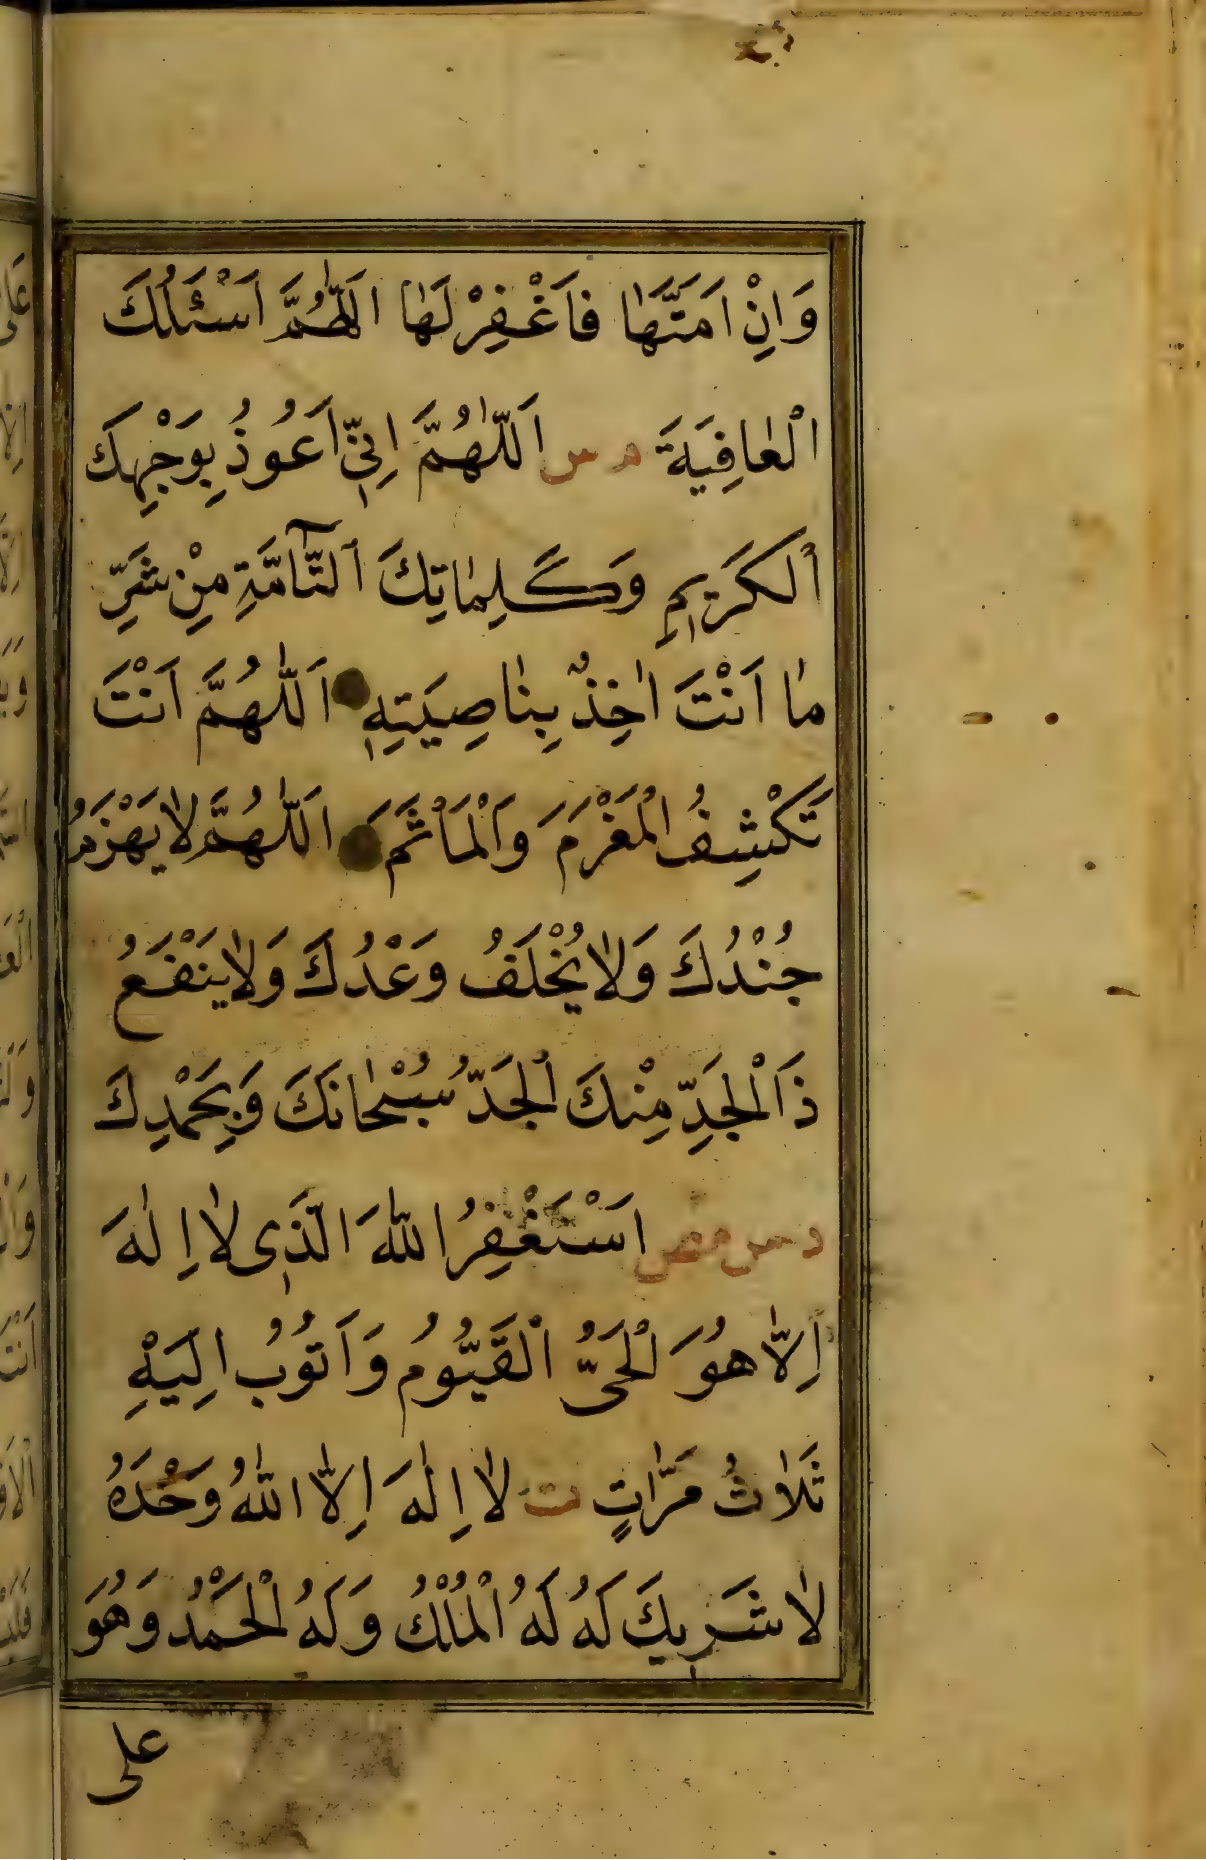 وَاِنْ اَمَتَّهٰا فَاَغْفِرْ لَهٰا اَللّٰهُمَّ اَسْئَلُكَ
الْعٰافِيَةَ م س اَللّٰهُمَّ اِنّٖي اَعُوذُ بِوَجْهِكَ
اْلكَرٖيمِ وَكَلِمٰاتِكَ اَلتّٰٓامَّةِ مِنْ شَرِّ
مٰا اَنْتَ اٰخِذٌ بِنٰاصِيَتِهٖ اَللّٰهُمَّ اَنْتَ
تَكْشِفُ الْمَغْرَمَ وَالْمَأْثَمَ اَللّٰهُمَّ لاٰ يَهْزَمُ
جُنْدُكَ وَلاٰ يُخْلَفُ وَعْدُكَ وَلاٰ يَنْفَعُ
ذَا الْجَدِّ مِنْكَ اْلجَدُّ سُبْحٰانَكَ وَبِحَمْدِكَ
د س مص اَسْتَغْفِرُ اللّٰهَ الَّذٖى لاٰ اِلٰهَ
اِلاّٰ هُوَ الْحَىُّ الْقَيُّومُ وَاَتُوبُ اِلَيْهِ
ثَلاٰثُ مَرّٰاتٍ ت لاٰ اِلٰهَ اِلاّٰ اللّٰهُ وَحْدَهُ
لاٰ شَرٖيكَ لَهُ لَهُ الْمُلْكُ وَلَهُ الْحَمْدُ وَهُوَ
على